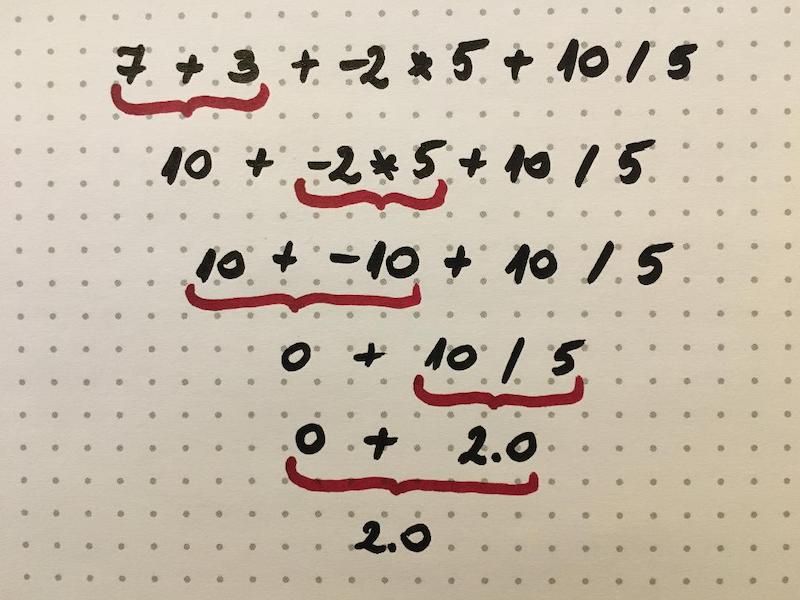 7 + 3 + -2 * 5 + 10 / 5
10 + -2 * 5 + 10 / 5
10 + -10 + 10 / 5
0 + 10 / 5
0 + 2.0
2.0